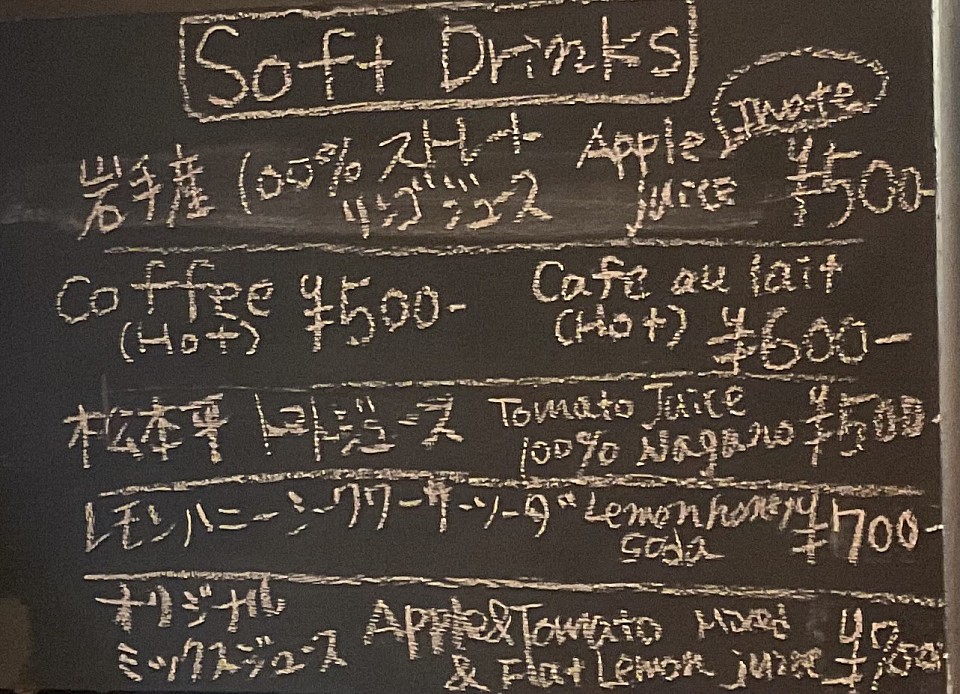 Soft Drinks
岩手産 100% ストレート Apple Iwate
リンゴジュース juice ¥500-
Coffee ¥500- Cafe au lait
(Hot) (Hot) ¥600-
松本平 トマトジュース Tomato Juice ¥500-
100% Nagano
レモンハニー シークワーサーソーダ Lemon honey ¥700-
soda
オリジナル
ミックスジュース Apple & Tomato Mixed
& Flat Lemon juice